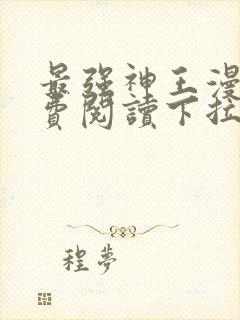 最強神王漫
費閱讀下拉
程夢